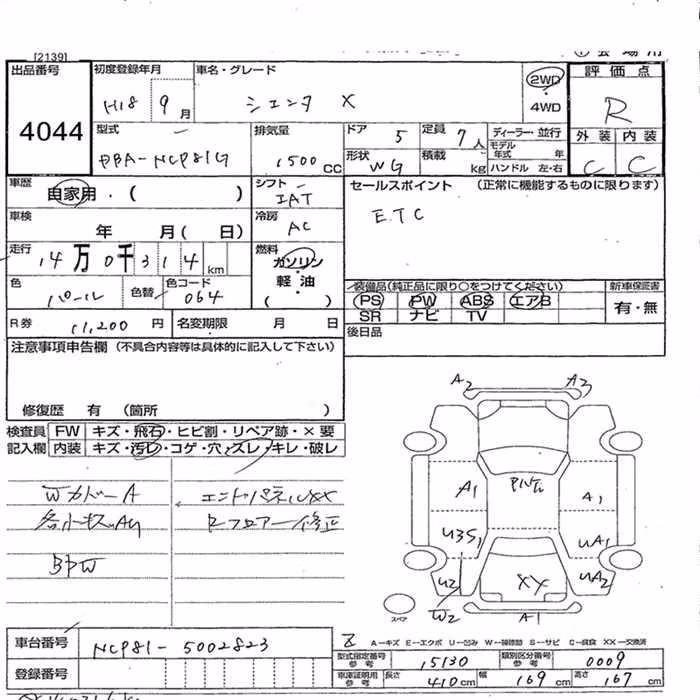 [2139]
出品番号
4044
初度登録年月
H18 9月
車名・グレード
シエンタ X
2WD
4WD
評価点
R
外装 内装
C C
型式
DBA-NCP81G
排気量
1500 CC
ドア 5
定員 7人
形状 WG
積載 kg
ディーラー・並行
モデル年式 年
ハンドル 左・右
車歴
自家用・( )
シフト
IAT
セールスポイント (正常に機能するものに限ります)
ETC
車検
年 月( 日)
冷房
AC
走行
14万0千314km
燃料
ガソリン
軽油
( )
色
パール
色替
色コード
064
装備品(純正品に限り○をつけてください)
PS PW ABS エアB
SR ナビ TV
新車保証書
有・無
R券 11,200円
名変期限 月 日
後日品
注意事項申告欄 (不具合内容等は具体的に記入して下さい)
修復歴 有 (箇所 )
検査員記入欄
FW キズ・飛石・ヒビ割・リペア跡・×要
内装 キズ・汚レ・コゲ・穴・ズレ・キレ・破レ
WカバーA
各小キズAU
エンドパネルXX
Rフロアー修正
A2 A3
A1 A1
U3S1 UA1
U2 UA2
XX
W2 A1
スペア
車台番号 NCP81-5002823
登録番号
A-キズ E-エクボ U-凹み W-補修跡 S-サビ C-腐食 XX-交換済
型式指定番号 参考 15130
類別区分番号 参考 0009
車庫証明用 参考 長さ 410cm 幅 169cm 高さ 167cm